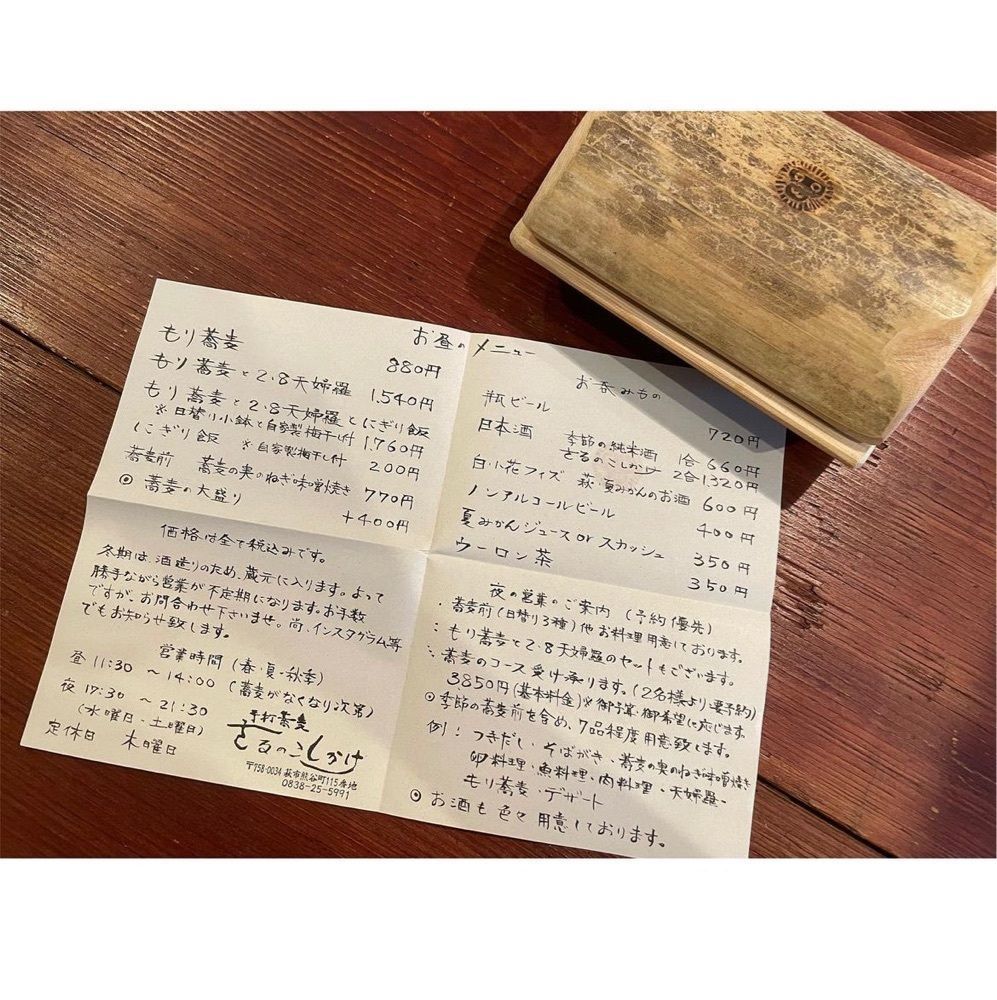 お昼のメニュー
もり蕎麦 880円
もり蕎麦と2・8天婦羅 1.540円
もり蕎麦と2・8天婦羅とにぎり飯
※日替り小鉢と自家製梅干し付 1.760円
にぎり飯 ※自家製梅干し付 200円
蕎麦前 蕎麦の実のねぎ味噌焼き 770円
◎蕎麦の大盛り +400円
お呑みもの
瓶ビール 720円
日本酒 季節の純米酒 1合 660円
さるのこしかけ 2合 1.320円
白い小花フィズ 萩・夏みかんのお酒 600円
ノンアルコールビール 400円
夏みかんジュース or スカッシュ 350円
ウーロン茶 350円
価格は全て税込みです。
冬期は、酒造りのため、蔵元に入ります。よって
勝手ながら営業が不定期になります。お手数
ですが、お問合わせ下さいませ。尚、インスタグラム等
でもお知らせ致します。
営業時間(春・夏・秋季)
昼 11:30 〜 14:00 (蕎麦がなくなり次第)
夜 17:30 〜 21:30
(水曜日・土曜日)
定休日 木曜日
手打蕎麦
さるのこしかけ
〒758-0034 萩市熊谷町115番地
0838-25-5991
夜の営業のご案内 (予約優先)
・蕎麦前(日替り3種)他お料理用意しております。
・もり蕎麦と2・8天婦羅のセットもございます。
・蕎麦のコース受け承ります。(2名様より要予約)
3850円(基本料金)※御予算・御希望に応じます。
◎季節の蕎麦前を含め、7品程度用意致します。
例! つきだし・そばがき・蕎麦の実のねぎ味噌焼き
卵料理・魚料理・肉料理・天婦羅・
もり蕎麦・デザート
◎お酒も色々用意しております。